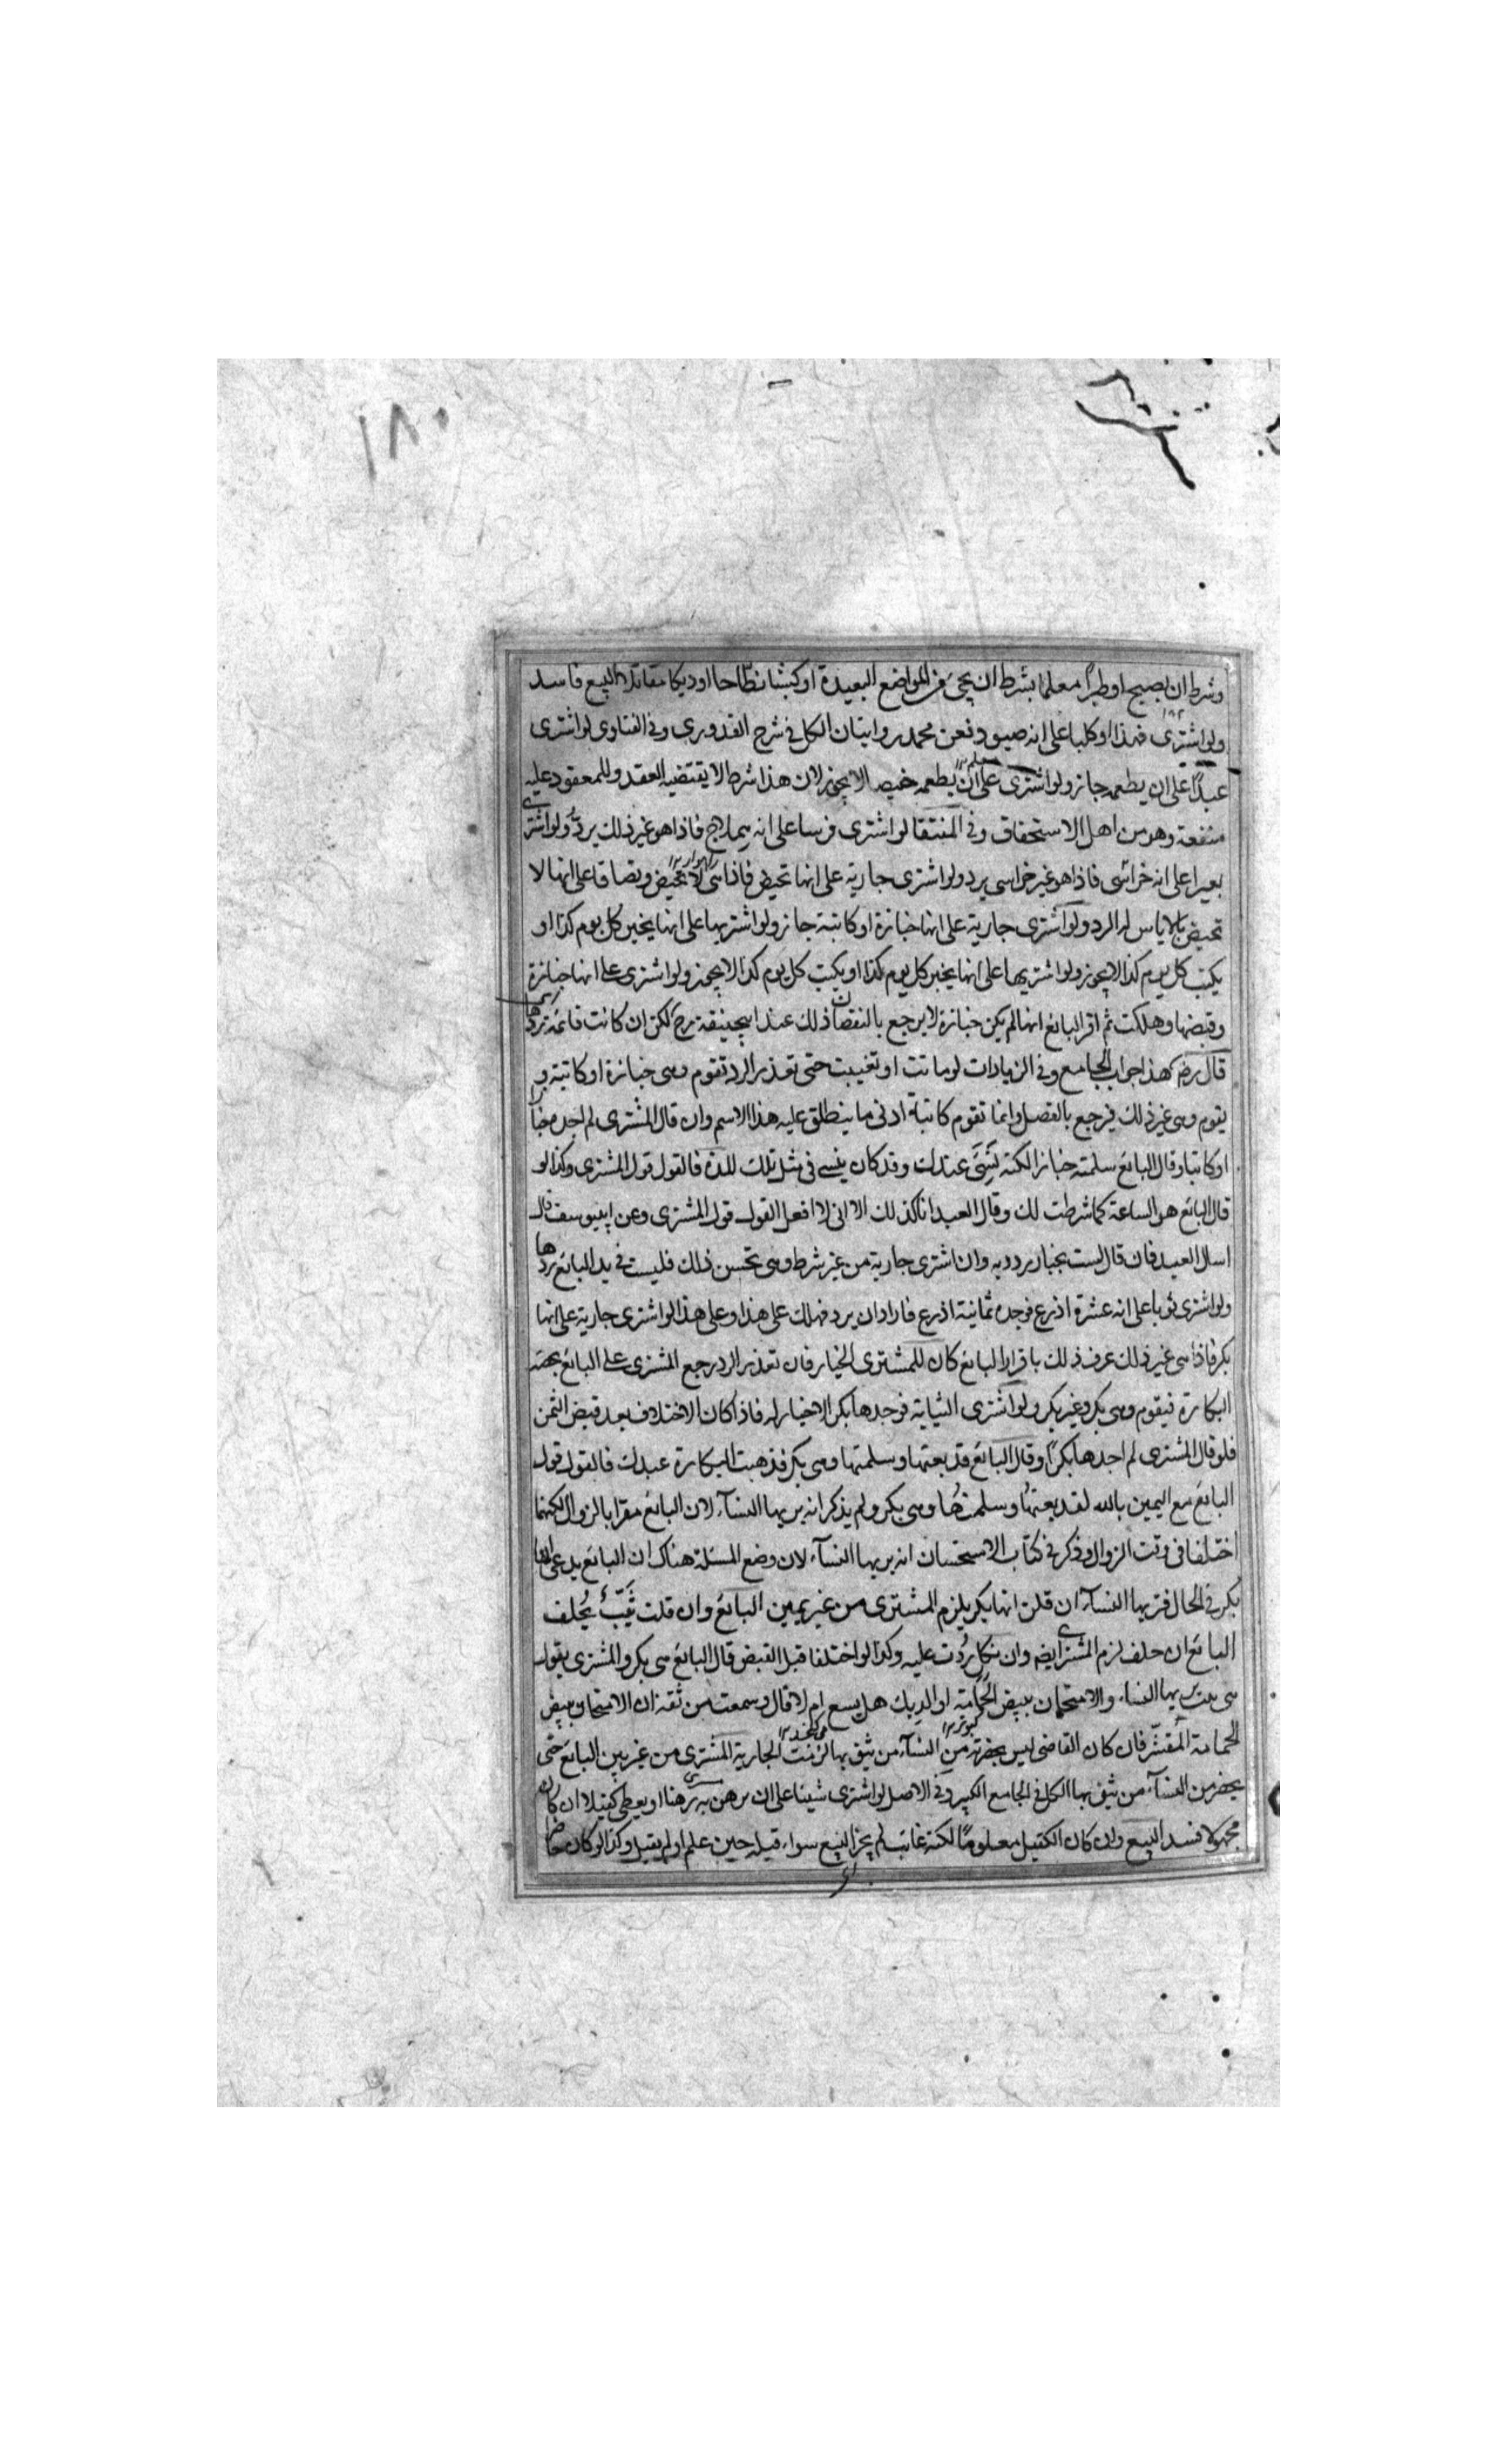 ١٨٠
وشرط ان يصيح او طيرا معلما بشرط ان يجئ من المواضع البعيدة او كبشا نطاحا او ديكا مقاتلا البيع فاسد
ولو اشترى فهذا او كلبا على انه صيود فعن محمد روايتان الكل في شرح القدوري وفي الفتاوى لو اشترى
عبدا على ان يطعمه جاز ولو اشترى على ان يطعمه خبيصا لا يجوز لان هذا شرط لا يقتضيه العقد وللمعقود عليه
منفعة وهو من اهل الاستحقاق وفي المنتقا لو اشترى فرسا على انه هملاج فاذا هو غير ذلك يرد ولو اشترى
بعيرا على انه خراسى فاذا هو غير خراسى يرد ولو اشترى جارية على انها تحيض فاذا هى لا تحيض وتصادقا على انها لا
تحيض بالاياس له الرد ولو اشترى جارية على انها خبازة او كاتبة جاز ولو اشتريها على انها يخبز كل يوم كذا او
يكتب كل يوم كذا لا يجوز ولو اشتريها على انها يخبز كل يوم كذا او يكتب كل يوم كذا لا يجوز ولو اشترى على انها خبازة
وقبضها وهلكت ثم اقر البائع انها لم يكن خبازة لا يرجع بالنقصان ذلك عند ابيحنيفة رح لكن ان كانت قائمة يردها
قال رضه هذا جواب الجامع وفي الزيادات لو ماتت او تغيبت حتى تعذر الرد تقوم وهى خبازة او كاتبة و
يقوم وهى غير ذلك فيرجع بالفضل وانما تقوم كاتبة ادنى ما ينطلق عليه هذا الاسم وان قال المشترى لم اجده خبازا
او كاتبا وقال البائع سلمته خبازا لكنه نسى عندك وقد كان ينسى في مثل تلك المدة فالقول قول المشترى وكذا لو
قال البائع هو الساعة كما شرطت لك وقال العبد انا كذلك الا انى لا افعل القول قول المشترى وعن ابيوسف قال
اسال العبد فان قال لست بخباز رد به وان اشترى جارية من غير شرط وهى تحسن ذلك فليست في يد البائع ردها
ولو اشترى ثوبا على انه عشرة اذرع فوجده ثمانية اذرع فاراد ان يرد فهلك على هذا وعلى هذا لو اشترى جارية على انها
بكر فاذا هى غير ذلك عرف ذلك باقرار البائع كان للمشترى الخيار فان تعذر الرد رجع المشترى على البائع بحصة
البكارة فيقوم وهى بكر وغير بكر ولو اشترى الثيابة فوجدها بكرا لا خيار له فاذا كان الاختلاف بعد قبض الثمن
فلو قال المشترى لم اجدها بكرا وقال البائع قد بعتها وسلمتها وهى بكر فذهبت البكارة عبدك فالقول قول
البائع مع اليمين بالله لقد بعتها وسلمتها وهى بكر ولم يذكر انه يريها النسآء لان البائع مقرا بالزوال لكنهما
اختلفا فى وقت الزوال وذكر في كتاب الاستحسان انه يريها النسآء لان وضع المسئلة هناك ان البائع يدعى انها
بكر في الحال فتريها النسآء ان قلن انها بكر يلزم المشترى من غير يمين البائع وان قلت ثيب يحلف
البائع ان حلف لزم المشترى ايضه وان نكل ردت عليه وكذا لو اختلفا قبل القبض قال البائع هى بكر والمشترى يقول
هى ثيب يريها النساء والامتحان ببيض الحمامة او الديك هل يسع ام لا قال وسمعت من ثقة ان الامتحان ببيض
الحمامة المقشر فان كان القاضى ليس بحضرته من النسآء من يثق بها لزمت الجارية المشترى من غير يمين البائع حتى
يحضر من النسآء من يثق بها الكل فى الجامع الكبير وفي الاصل لو اشترى شيئا على ان يرهن به رهنا او يعطى كفيلا ان كان
مجهولا فسد البيع وان كان الكفيل معلوما لكنه غائب لم يجز البيع سواء قبله حين علم او لم يقبل وكذا لو كان حاضرا